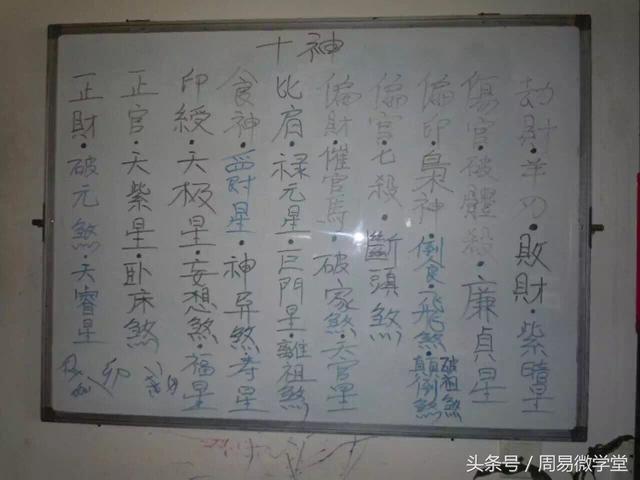 十神
劫財·羊刃·敗財·紫暗星
傷官·破體殺·廉貞星
偏印·梟神·倒食·飛煞·顛倒煞 破祖煞
偏官·七殺·斷頭煞
偏財·催官馬·破家煞·天官星
比肩·禄元星·巨門星·離祖煞
食神·爵星·神异煞·寿星
印綬·天极星·妄想煞·福星
正官·天紫星·卧床煞
正財·破元煞·天睿星
卯
头条号 / 周易微学堂